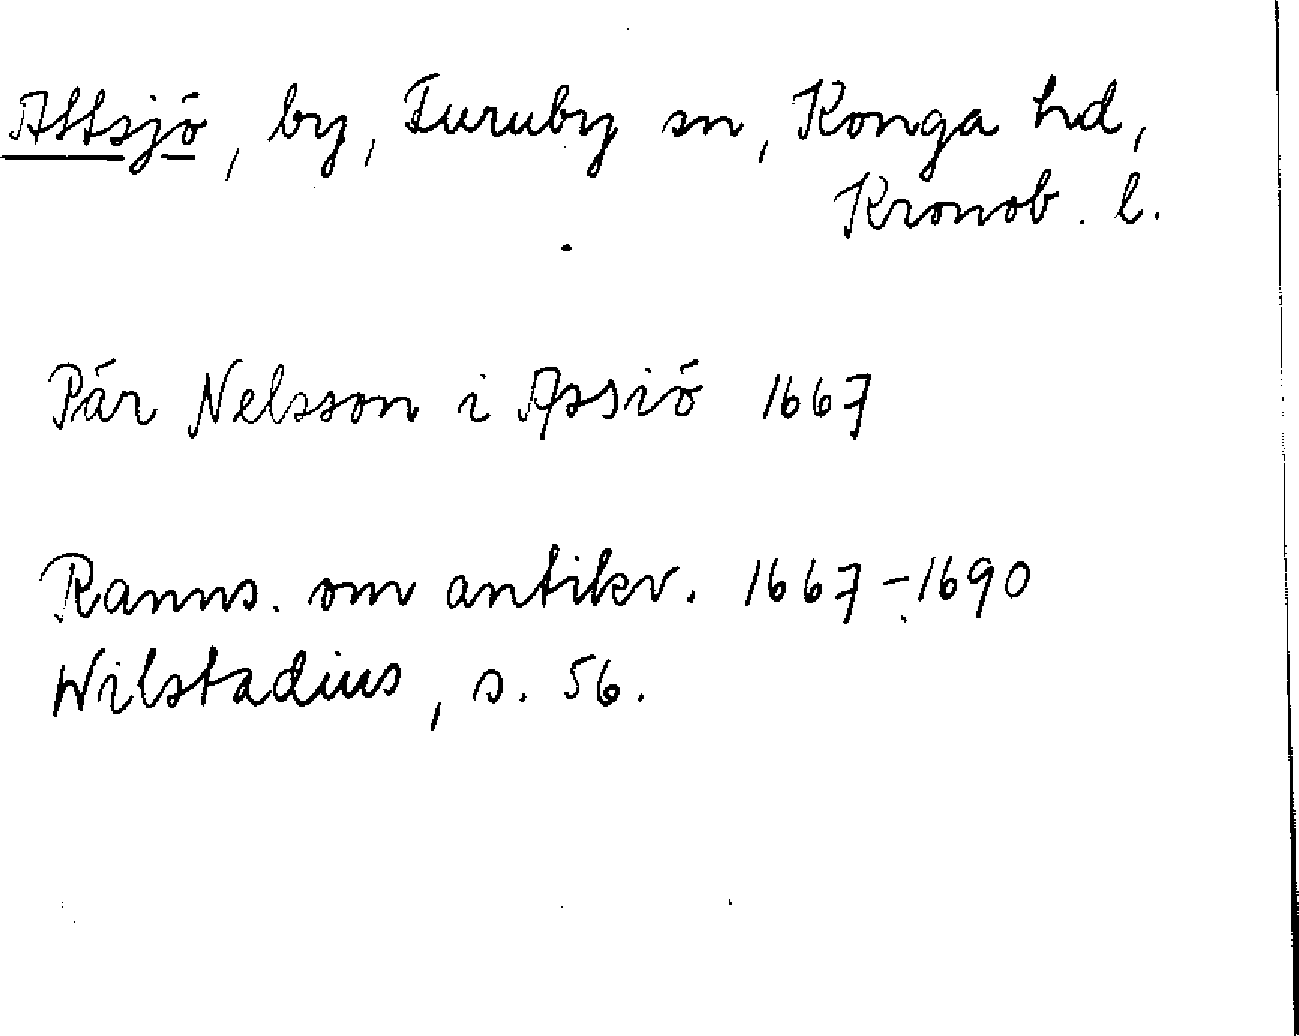 Attsjö, by, Furuby sn, Konga hd,
Kronob. l.
Pär Nelsson i Assiö 1667
Ranns. om antikv. 1667-1690
Wilstadius, s. 56.